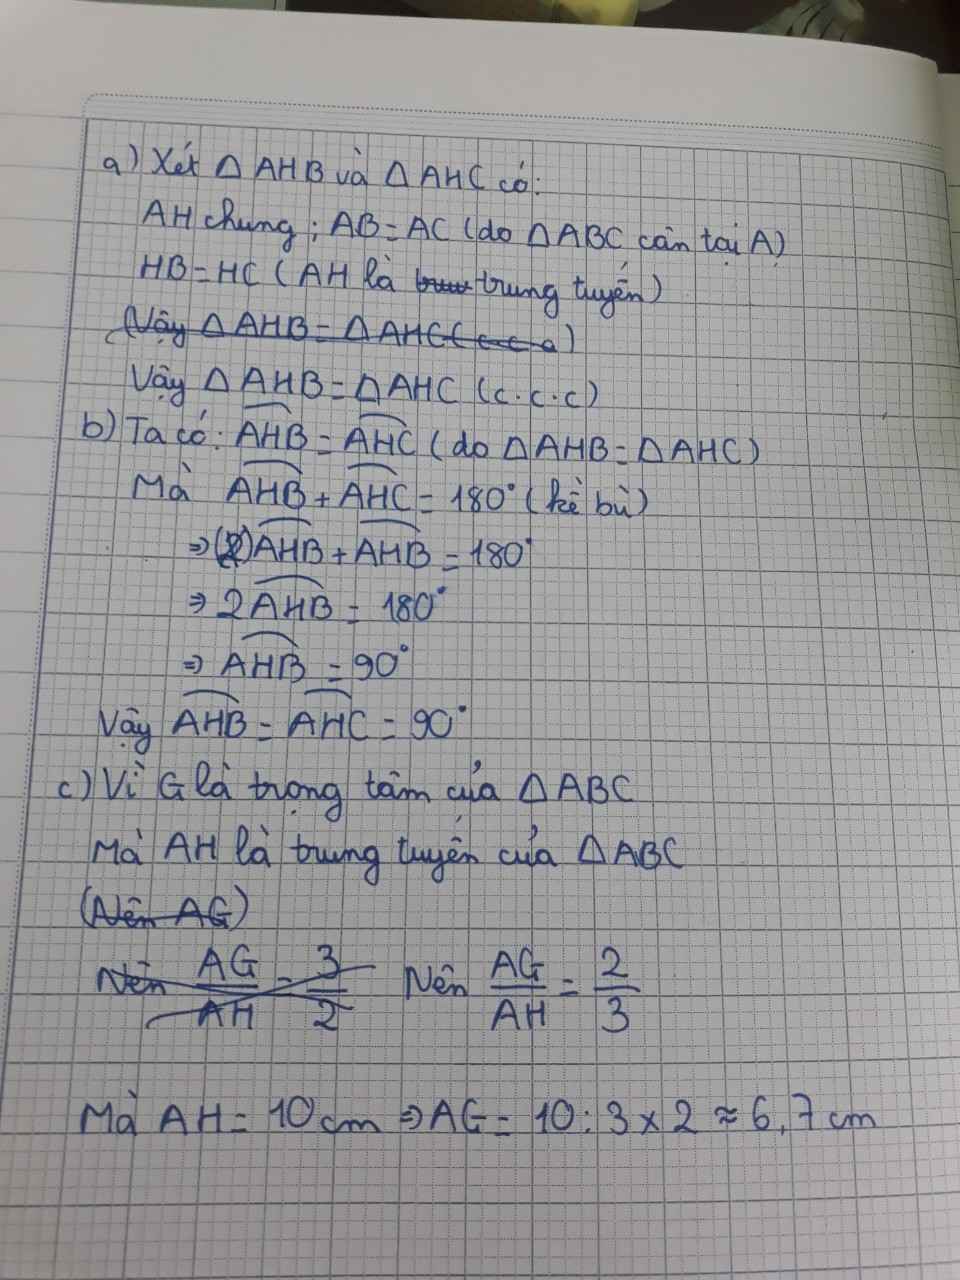 a) Xét Δ AHB và Δ AHC có:
AH chung; AB = AC (do ΔABC cân tại A)
HB = HC (AH là trung tuyến)
(Vậy Δ AHB = Δ AHC (c c a)
Vậy Δ AHB = Δ AHC (c.c.c)
b) Ta có: AHB = AHC (do ΔAHB = ΔAHC)
Mà AHB + AHC = 180° (kề bù)
⇒ (2) AHB + AHB = 180°
⇒ 2AHB = 180°
⇒ AHB = 90°
Vậy AHB = AHC = 90°
c) Vì G là trọng tâm của ΔABC
Mà AH là trung tuyến của ΔABC
(Nên AG)
Nên AG/AH = 3/2 Nên AG/AH = 2/3
Mà AH = 10 cm ⇒ AG = 10 : 3 x 2 ≈ 6,7 cm